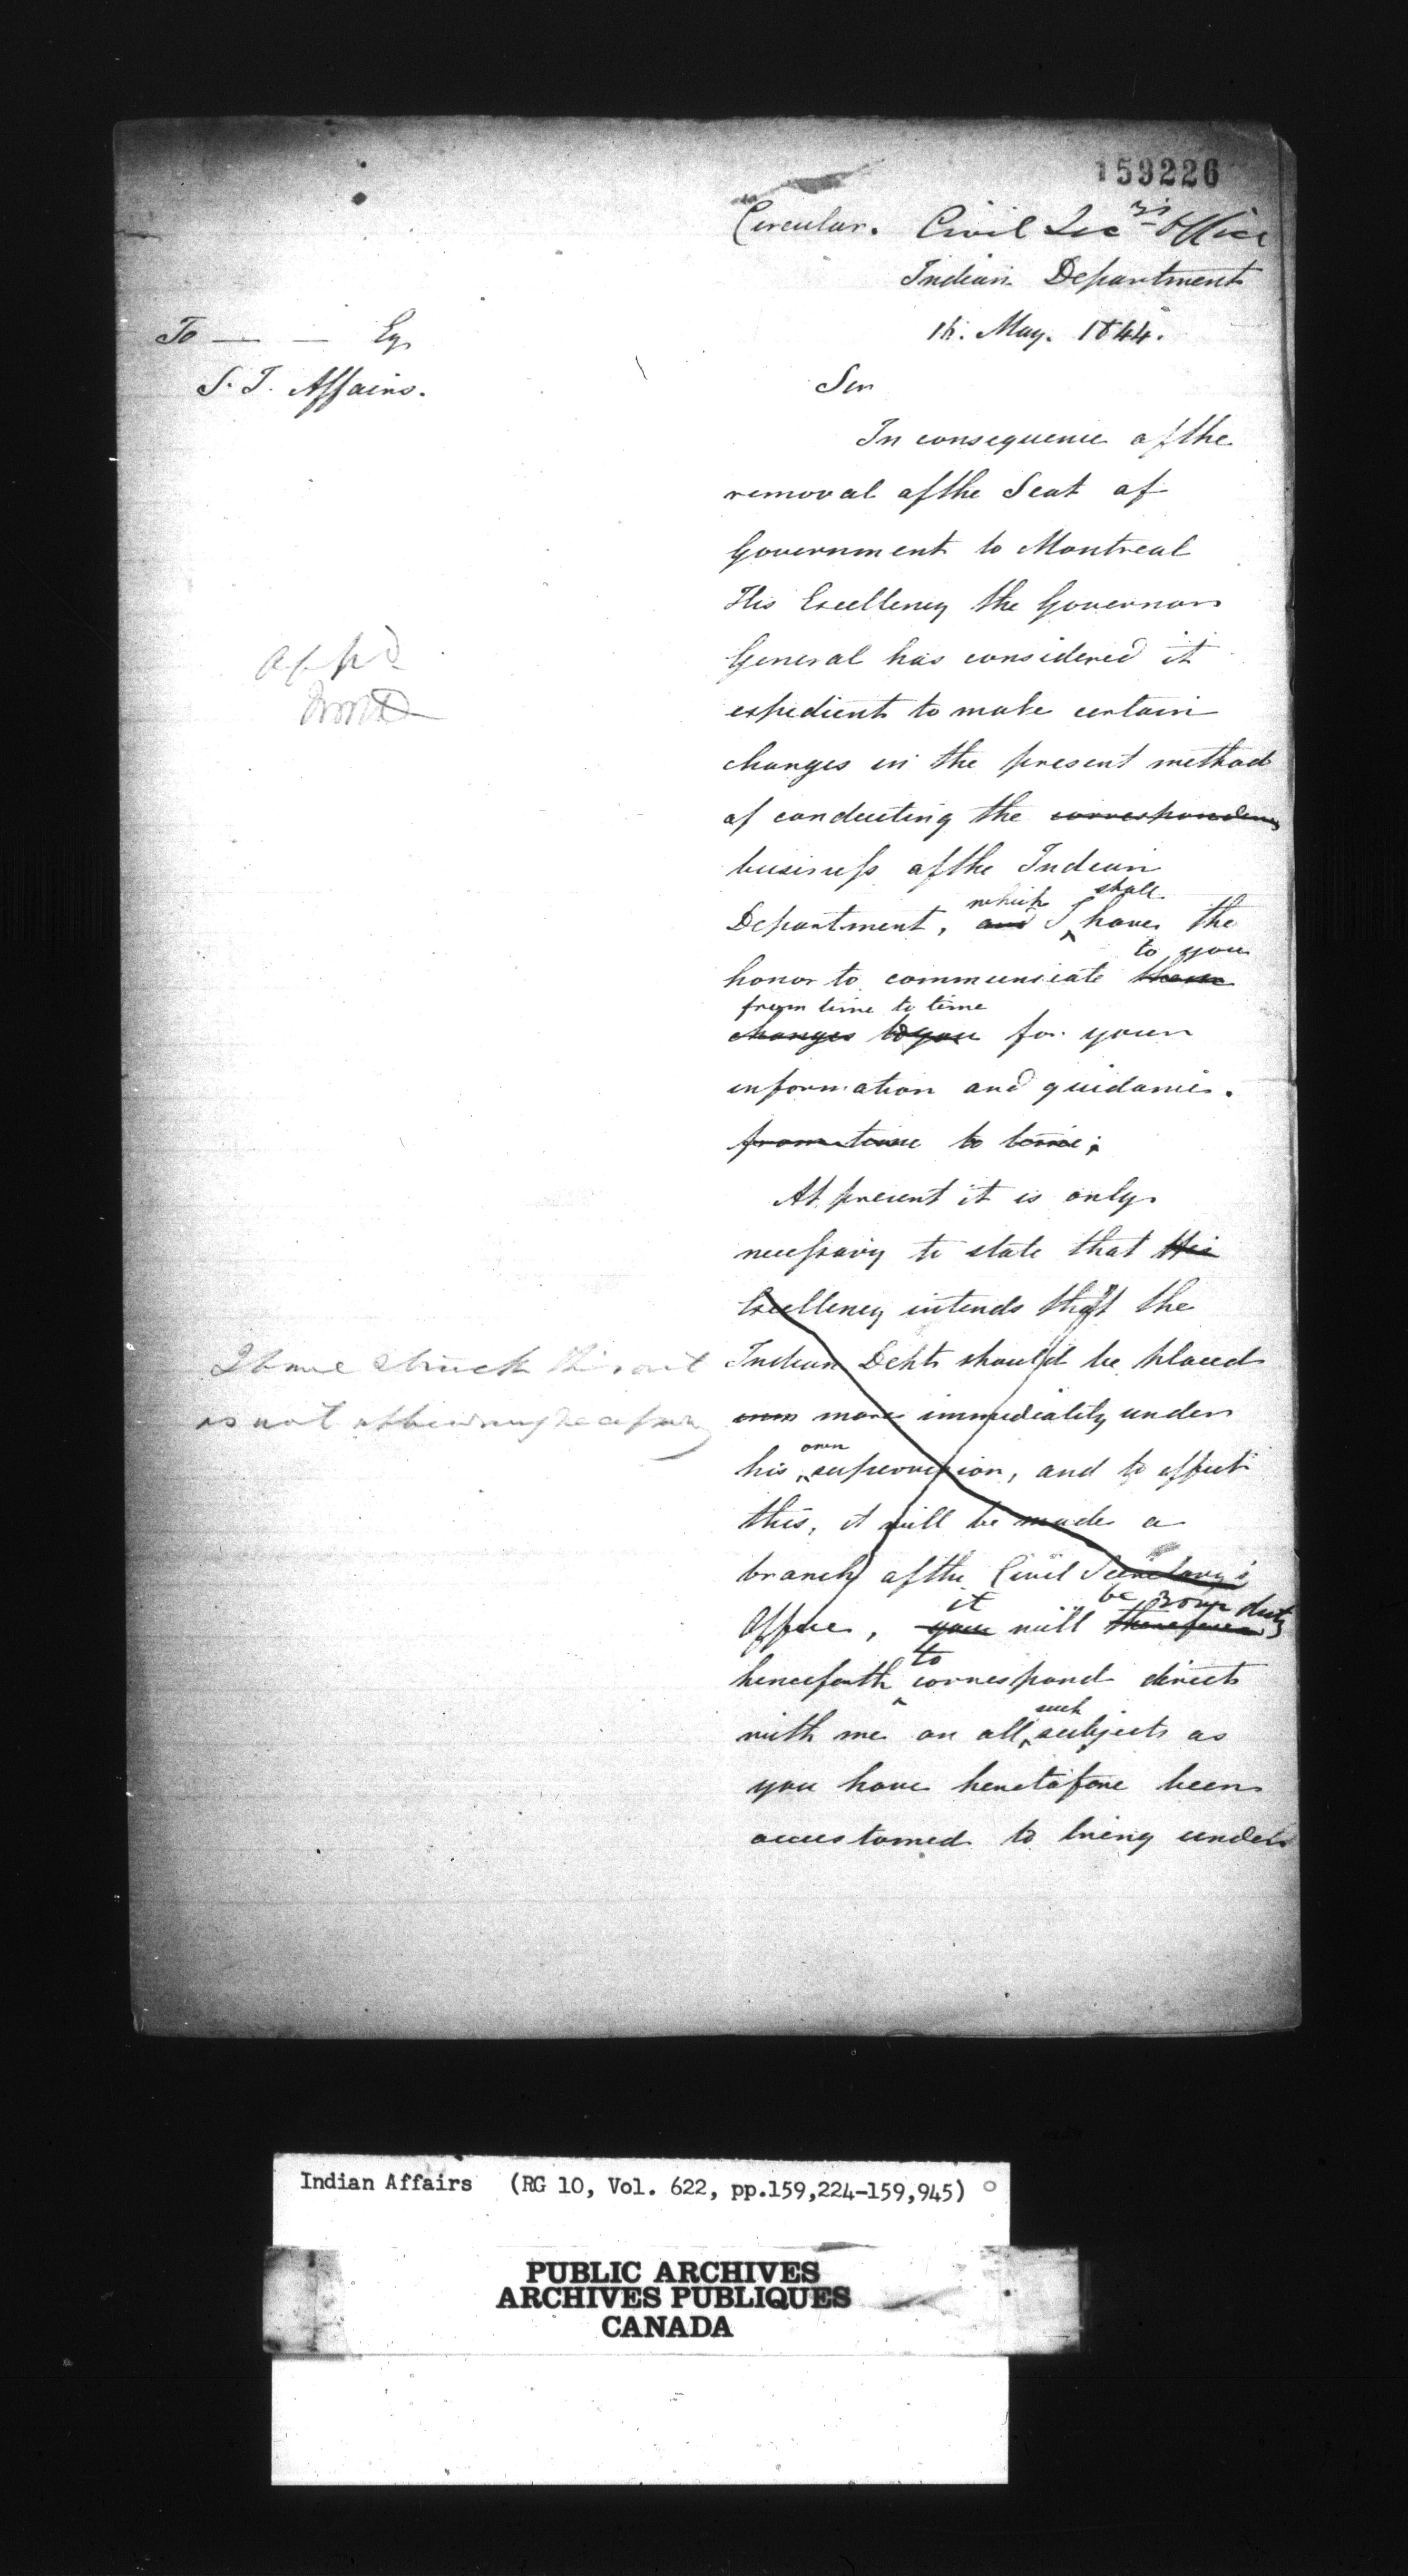 159226
Circular. Civil Sec.ry's Office
Indian Department
May. 1844.
To — — Esqr
S. I. Affairs.
Sir
In consequence of the
removal of the Seat of
Government to Montreal
His Excellency the Governor
General has considered it
appd
expedient to make certain
changes in the present method
of conducting the correspondence
business of the Indian
which shall
Department, and I have the
to you
honor to communicate these
from time to time
changes to you for your
information and guidance.
from time to time;
At present it is only
necessary to state that His
Excellency intends that the
I have struck this out
Indian Dept. should be placed
as not
more immediately under
own
his supervision, and to effect
this, it will be made a
branch of the Civil Secretary's
it be your duty
Office, you will therefore
to
henceforth correspond direct
such
with me on all subjects as
you have heretofore been
accustomed to bring under
Indian Affairs (RG 10, Vol. 622, pp.159,224-159,945)
PUBLIC ARCHIVES
ARCHIVES PUBLIQUES
CANADA